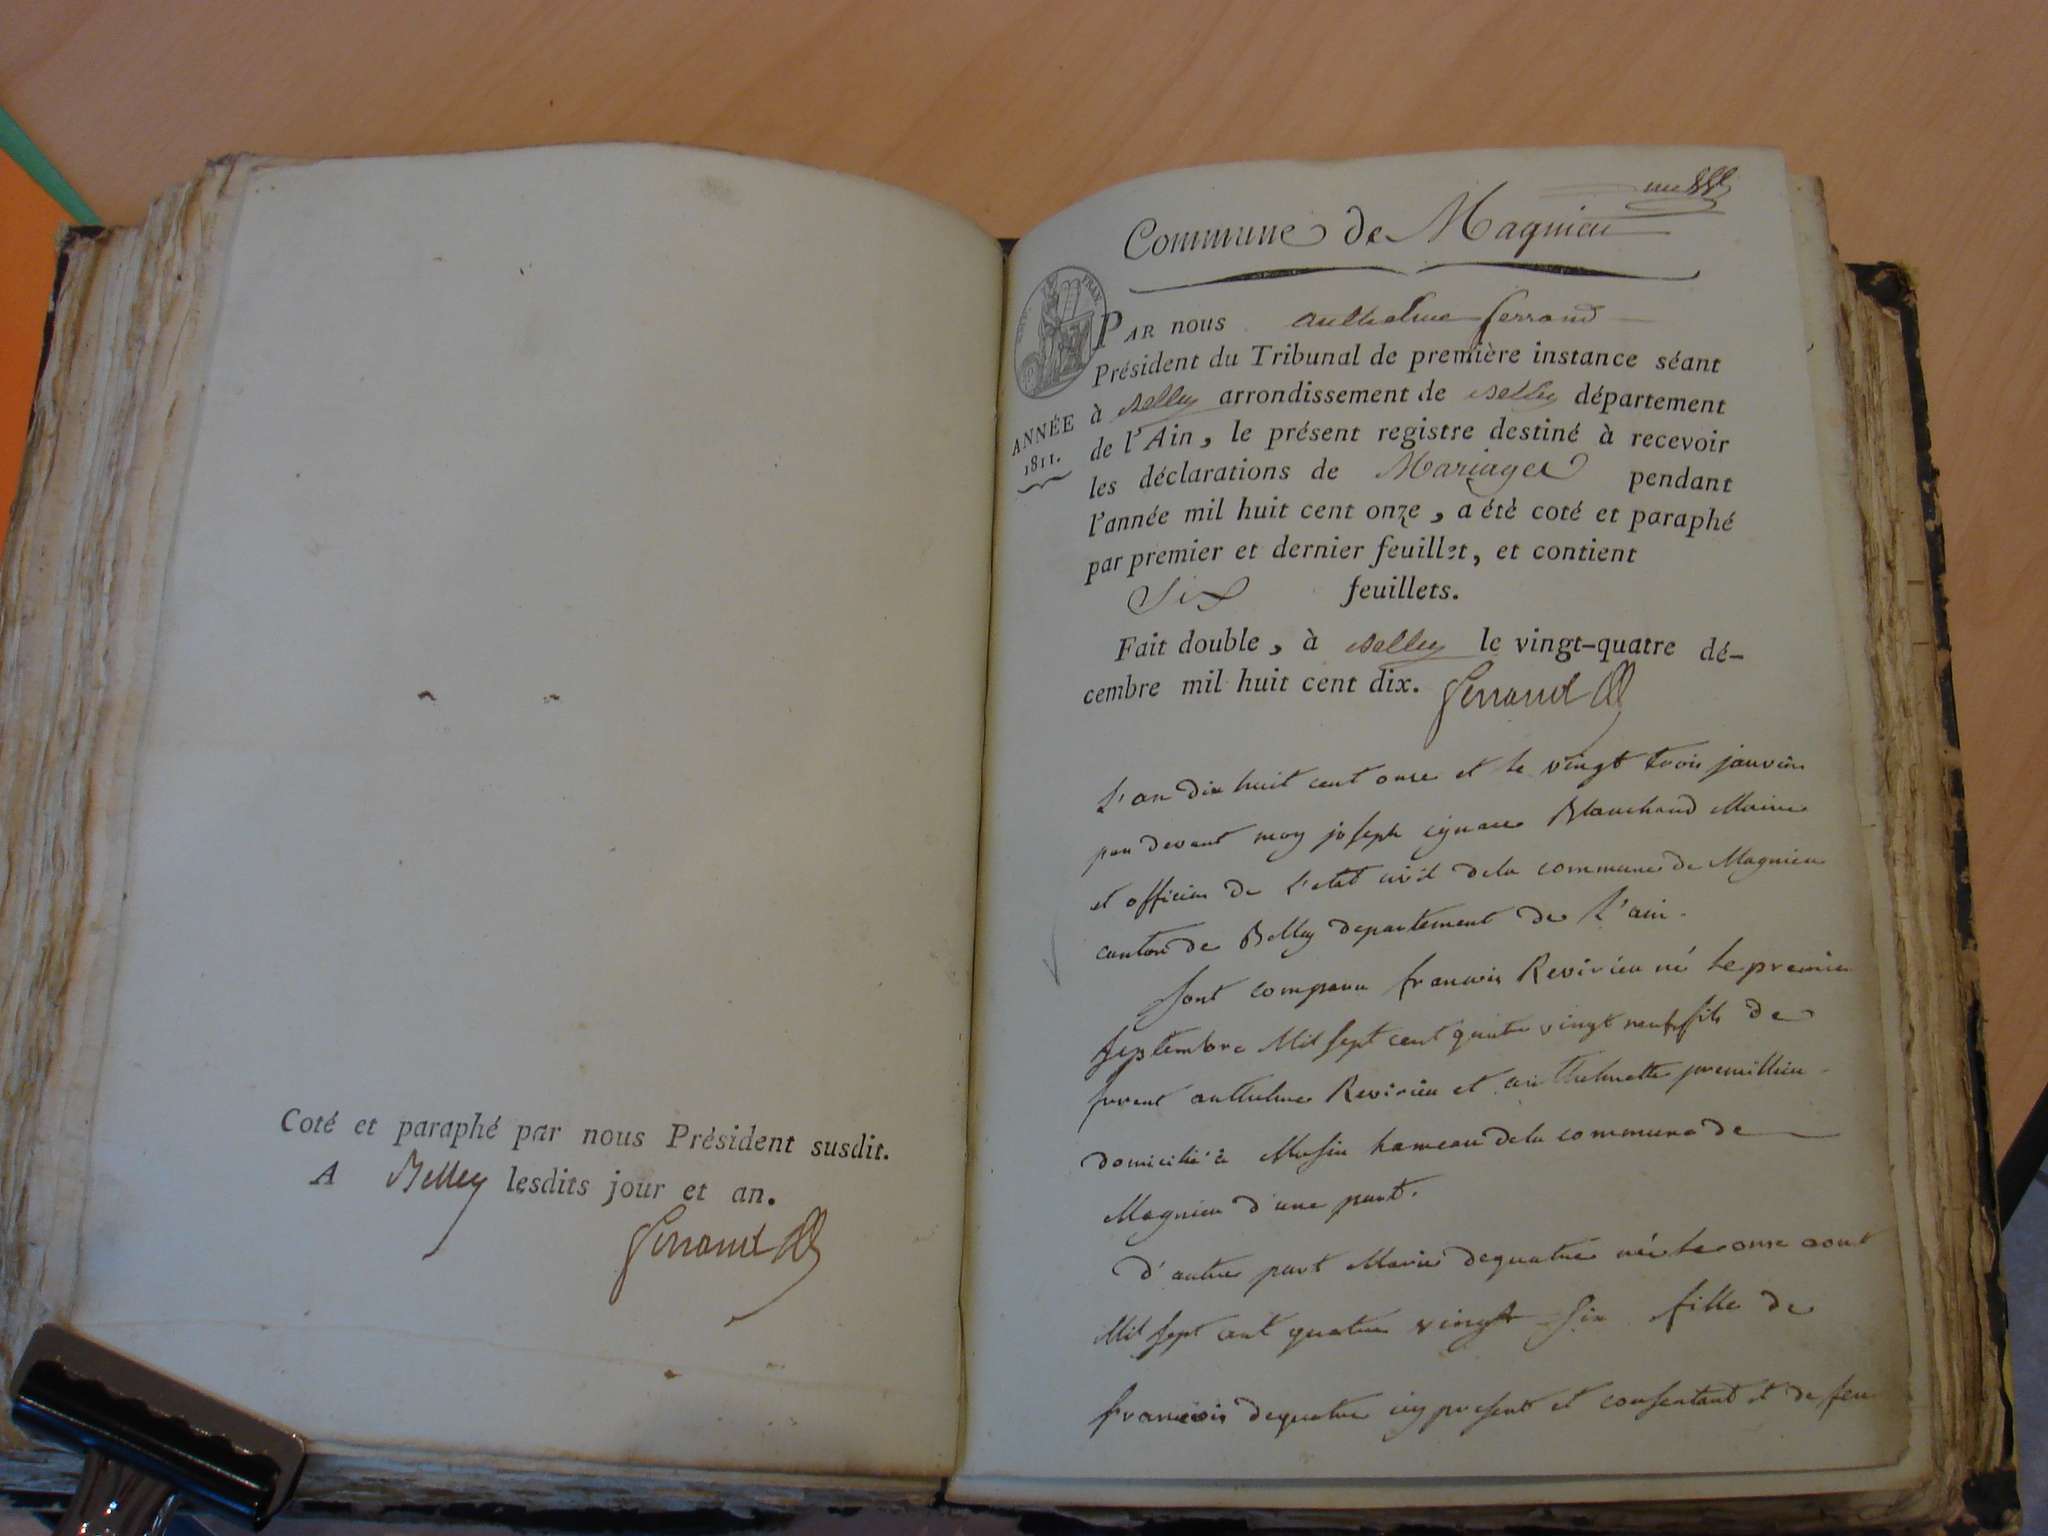 Coté et paraphé par nous Président susdit.
A Belley lesdits jour et an.
Ferrand
Commune de Magnieu
FRAN.
ANNÉE
1811.
PAR nous anthelme ferrand
Président du Tribunal de première instance séant
à Belley arrondissement de Belley département
de l'Ain, le présent registre destiné à recevoir
les déclarations de Mariages pendant
l'année mil huit cent onze, a étè coté et paraphé
par premier et dernier feuillet, et contient
Six feuillets.
Fait double, à Belley le vingt-quatre dé-
cembre mil huit cent dix. Ferrand
L'an dix huit cent onse et le vingt trois janvier
par devant moy joseph ignace Blanchard Maire
et officier de l'etat civil dela commune de Magnieu
canton de Belley departement de l'ain.
sont comparu francois Revirieu né le premier
septembre Mil sept cent quatre vingt neuf fils de
anthelme Revirieu et anthelmette premillieu
domicilié à Musin hameau dela commune de
Magnieu d'une part.
d'autre part Marie dequatre née le onse aout
Mil sept cent quatre vingt six fille de
francois dequatre icy present et consentant et de feu